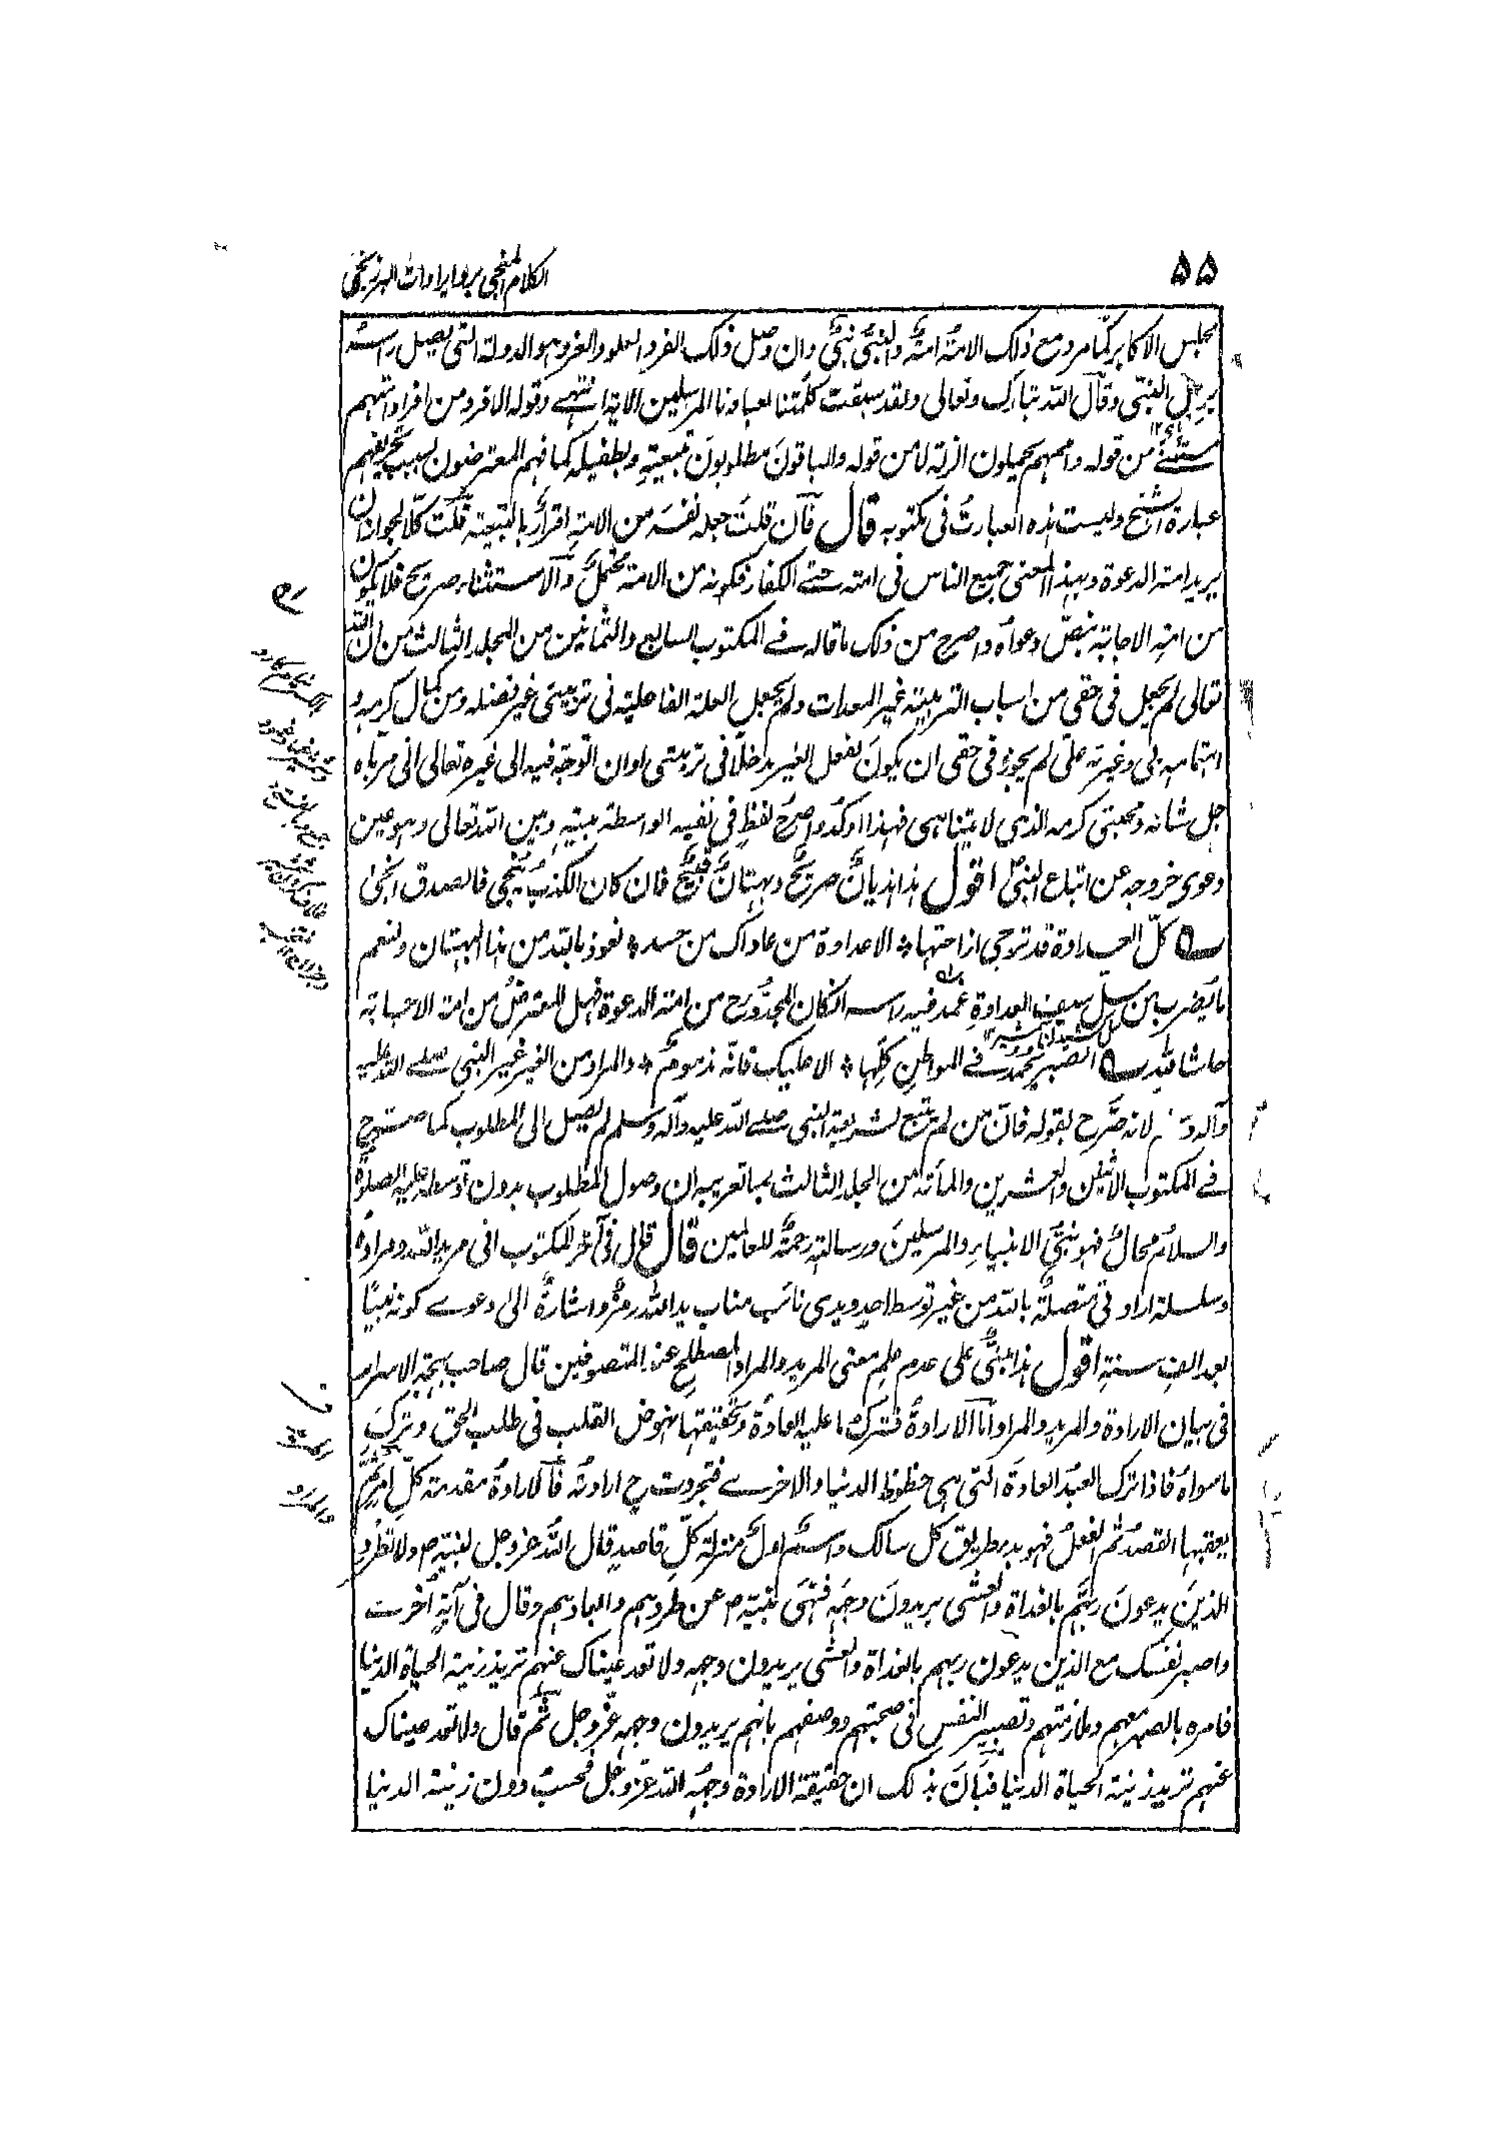 ۵۵
الكلام المنجی برد ایرادات البرزنجی
مجلس الاكابر كما مر ومع ذلك الامة امة والنبی نبی وان وصل ذلك الفرد العلو والغر وهو الدولة التی یصل راسه
برجل النبی وقال الله تبارك وتعالی ولقد سبقت كلمتنا لعبادنا المرسلین الایة انتهے وقوله الا فرد من افراد امتهم
مستثنے من قوله واممهم یحیلون الزلة لا من قوله والباقون مطلوبون بتبعیته وبطفیله كما فهم المعترضون لسبب تحریفهم
عبارة الشیخ ولیست هذه العبارت فی مكتوبه قال فان قلت جعله نفسه من الامة اقرار بالتبعیة قلت كلا لجواز ان
یرید امة الدعوة وبهذا المعنی جمیع الناس فی امته حتے الكفار فكونه من الامة محتمل والاستثناء صریح فلا یكون
من امة الاجابة بنص دعواه واصرح من ذلك ما قاله فے المكتوب السابع والثمانین من المجلد الثالث من ان الله
تعالی لم یجعل فی حقی من اسباب التربیة غیر المعدات ولم یجعل العلة الفاعلیة فی تربیتی غیر فضله ومن كمال كرمه و
اهتمامه بی وغیرته علی لم یجوز فی حقی ان یكون لفعل الغیر مدخلا فی تربیتی او ان اتوجه فیه الی غیره تعالی انی مرباه
جل شانه ومجتبی كرمه الذی لا یتناهی فهذا اوكد واصرح لفظ فی نفیه الواسطة بینه وبین الله تعالی وهو عین
دعوی خروجه عن اتباع النبی اقول هذا هذیان صریح وبهتان قبیح فان كان الكذب ینجی فالصدق انجی
كل العداوة قد ترجی ازاحتها ٭ الا عداوة من عاداك من حسد ٭ نعوذ بالله من هذا البهتان ولنعم
ما یضرب من سل سیف العداوة غمد فیه راسه ان كان المجدد رح من امة الدعوة فهل المعترض من امة الاجابة
حاشا لله الصبر یحمد فے المواطن كلها ٭ الا علیك فانه مذموم ٭ والمراد من الغیر غیر النبی صلے الله علیه
وآله لانه صرح بقوله فان من لم یتبع لشریعة النبی صلے الله علیه وآله وسلم لم یصل الی المطلوب كما صرح
فے المكتوب الاثنین والعشرین والمأته من الجلد الثالث بما تعریبه ان وصول المطلوب بدون توسط علیه الصلوة
والسلام محال فهو نبی الانبیاء والمرسلین ورسالته رحمة للعالمین قال قال فی آخر المكتوب انی مرید الله ومراده
وسلسلة ارادتی متصلة بالله من غیر توسط احد ویدی نائب مناب ید الله رمز واشارة الی دعوے كونه نبیا
بعد الف سنة اقول هذا مبنی علی عدم علم معنی المرید والمراد المصطلح عند المتصوفین قال صاحب بهجة الاسرار
فی بیان الارادة والمرید والمراد اما الارادة فترك ما علیه العادة وتحقیقتها نهوض القلب فی طلب الحق وترك
ما سواه فاذا ترك العبد العادة التی هی حظوظ الدنیا والاخرے فتجردت ح ارادته فالارادة مقدمة كل امر ثم
یعقبها القصد ثم الفعل فهو بدء طریق كل سالك واسم اول منزلة كل قاصد قال الله عز وجل لنبیه ص ولا تطرد
الذین یدعون ربهم بالغداة والعشی یریدون وجهه فنهی نبیه ص عن طردهم وابعادهم وقال فی آیة اخرے
واصبر نفسك مع الذین یدعون ربهم بالغداة والعشی یریدون وجهه ولا تعد عیناك عنهم ترید زینة الحیاة الدنیا
فامره بالصبر معهم وملازمتهم وتصبیر النفس فی صحبتهم ووصفهم بانهم یریدون وجهه عز وجل ثم قال ولا تعد عیناك
عنهم ترید زینة الحیاة الدنیا فبان بذلك ان حقیقة الارادة وجه الله عز وجل فحسب دون زینة الدنیا